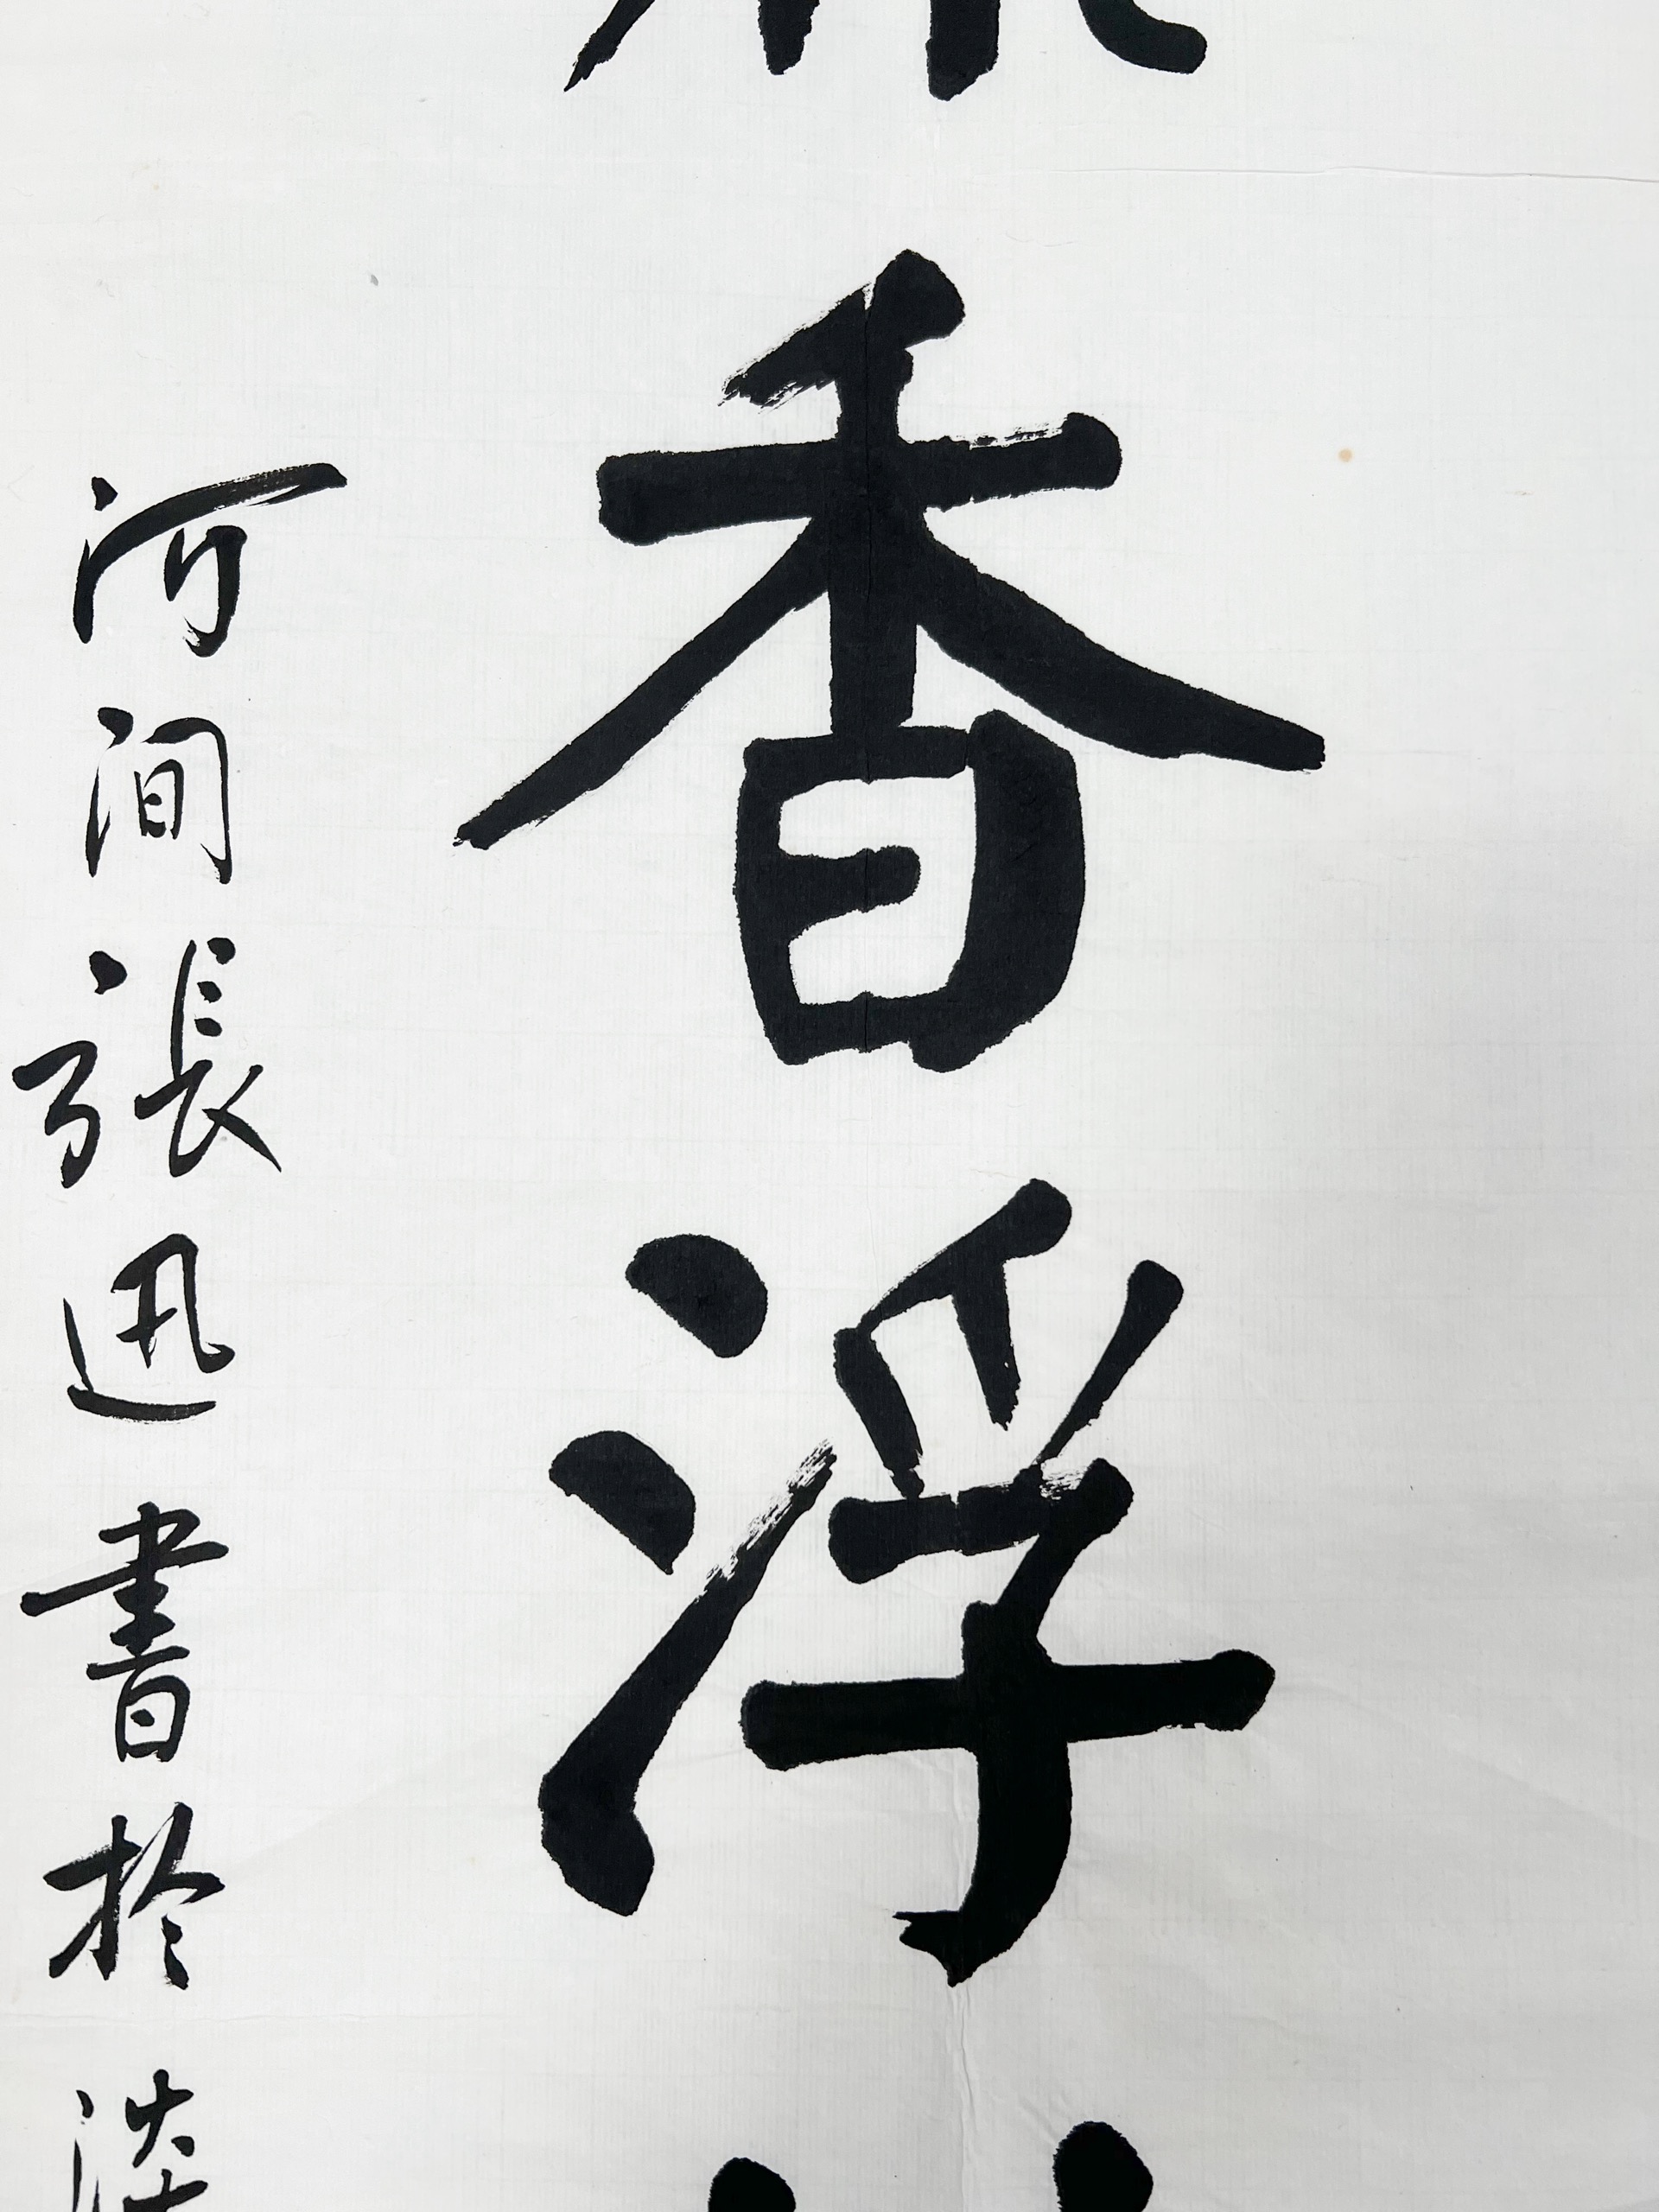 香浮
河間張迅書於